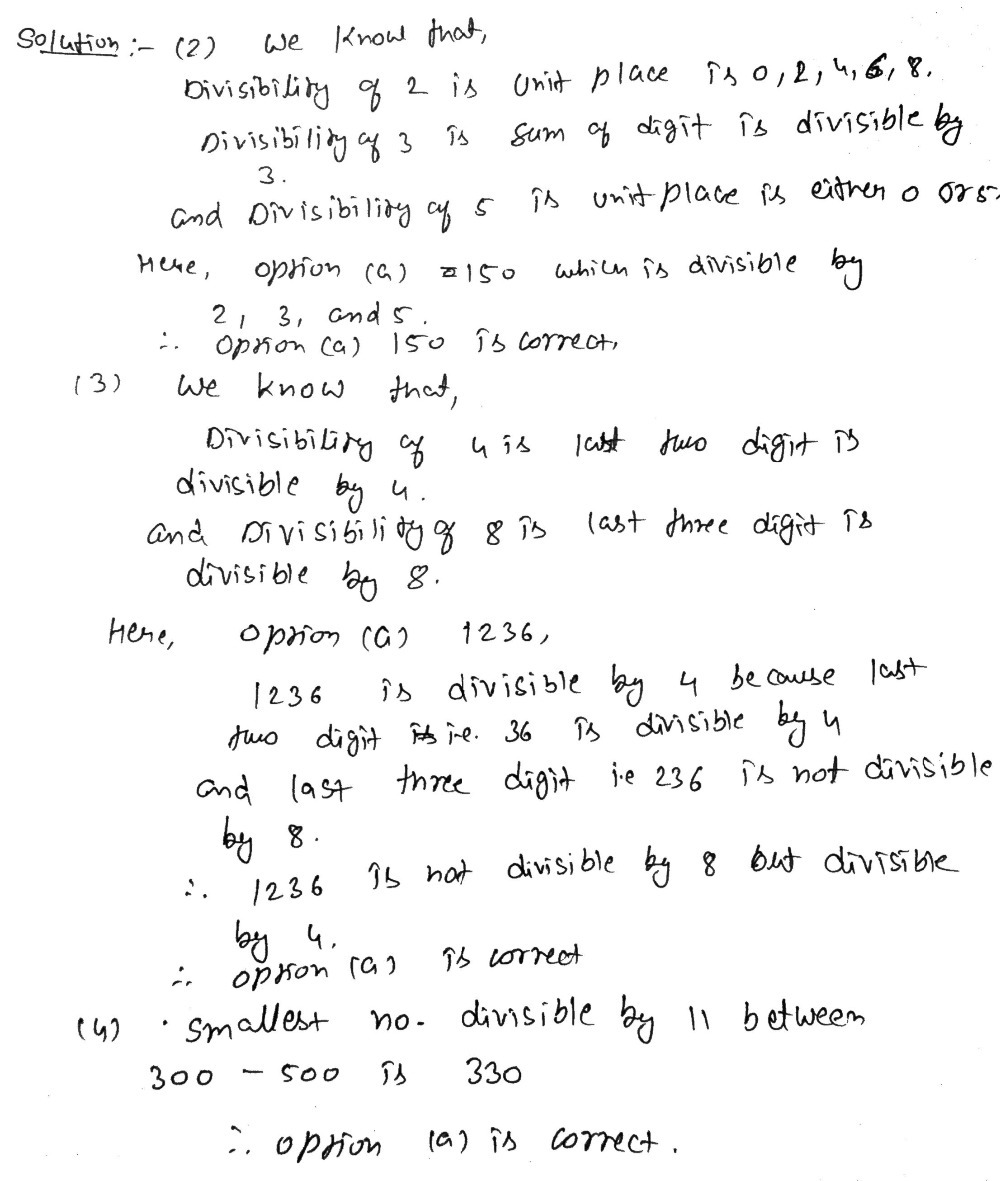 Solution :- (2) We Know that,
Divisibility of 2 is Unit place is 0, 2, 4, 6, 8.
Divisibility of 3 is sum of digit is divisible by
3.
and Divisibility of 5 is unit place is either 0 or 5.
Here, option (a) = 150 which is divisible by
2, 3, and 5.
∴ option (a) 150 is correct.
(3) We know that,
Divisibility of 4 is last two digit is
divisible by 4.
and Divisibility of 8 is last three digit is
divisible by 8.
Here, option (a) 1236,
1236 is divisible by 4 because last
two digit i.e. 36 is divisible by 4
and last three digit i.e 236 is not divisible
by 8.
∴ 1236 is not divisible by 8 but divisible
by 4.
∴ option (a) is correct
(4) . Smallest no. divisible by 11 between
300 - 500 is 330
∴ option (a) is correct.